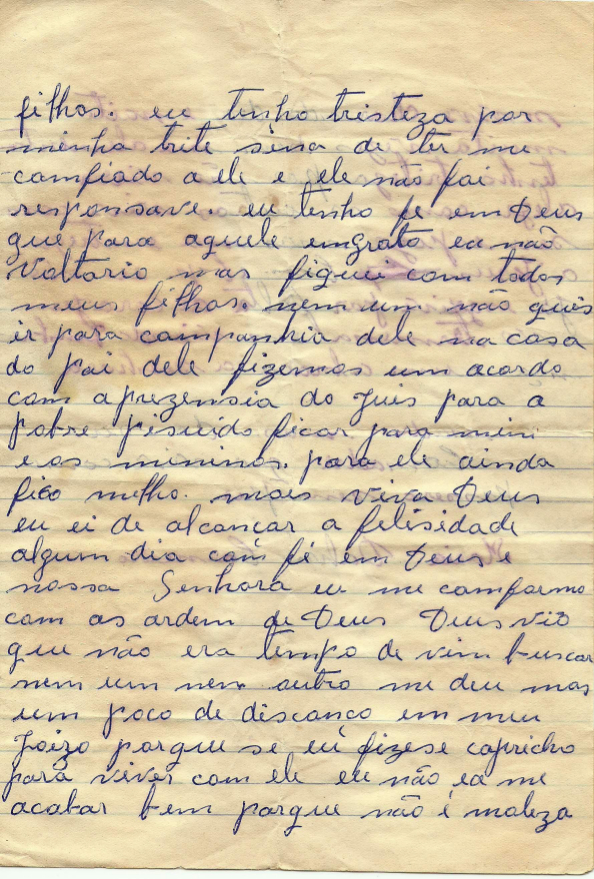 filhos. eu tenho tristeza por
minha trite sina de ter me
comfiado a ele e ele não foi
responsave. eu tenho fe em Deus
que para aquele imgrato eu não
Voltario mas fiquei com todos
meus filhos. nem um não quis
ir para companhia dele na casa
do pai dele fizemos um acordo
com aprezensia do Juis para a
pobre pisuido ficar para mim
e os mininos. para ele ainda
fico melho. mais viva Deus
eu ei de alcancar a felisidade
algum dia com fé em Deus e
nossa Senhora eu me comformo
com as ordem de Deus Deus vio
que não era tempo de vim buscar
nem um nem outro me deu mas
um poco de discanco em meu
Joizo porque se eu fizese capricho
para viver com ele eu não ea me
acabar bem porque não é moleza